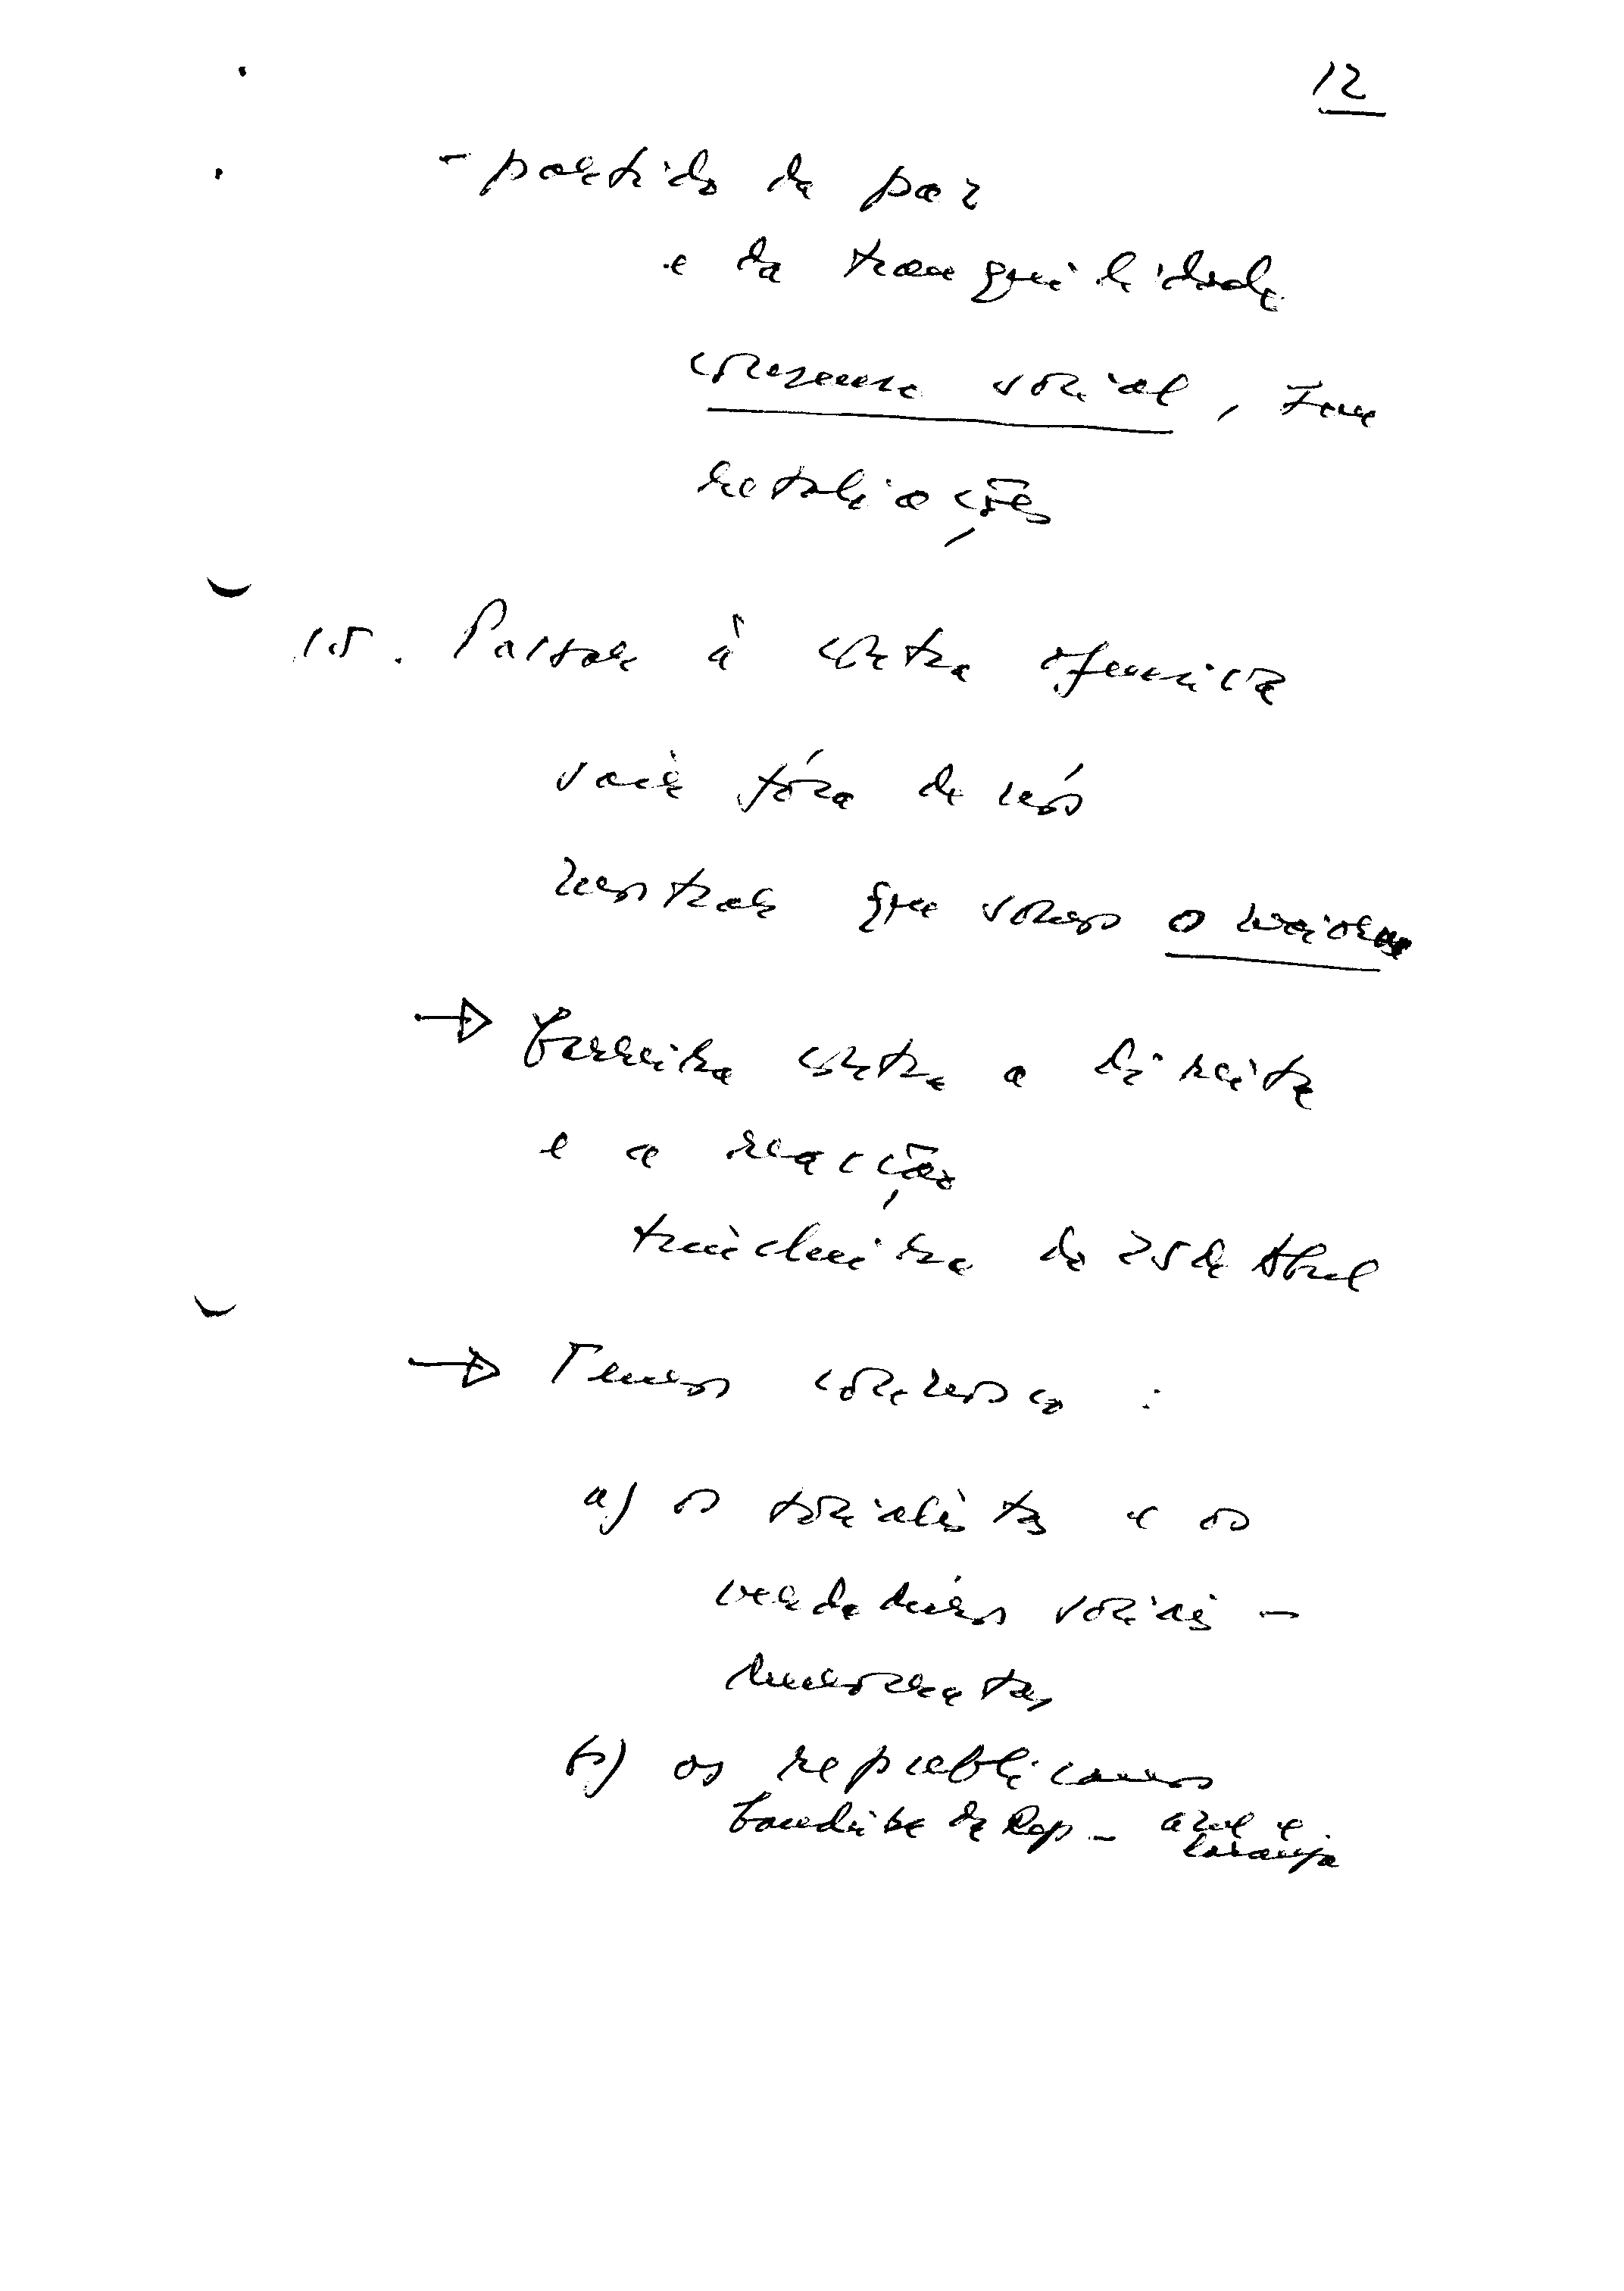 12
- partido da paz
e da tranquilidade
consenso social, sem
retaliações
15. Passar à contra ofensiva
sair fóra de nós
mostrar que somos o maior
→ barreira contra a direita
e a reacção
trincheira do 25 de Abril
→ Temos connosco :
a) os socialistas e os
verdadeiros sociais -
democratas
b) os republicanos
bandeira da Rep - azul e
laranja